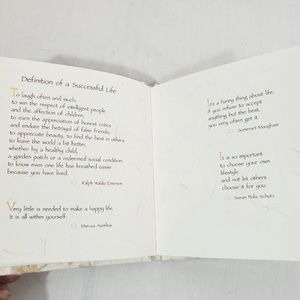 Definition of a Successful Life
To laugh often and much;
to win the respect of intelligent people
and the affection of children;
to earn the appreciation of honest critics
and endure the betrayal of false friends;
to appreciate beauty, to find the best in others,
to leave the world a bit better,
whether by a healthy child,
a garden patch or a redeemed social condition;
to know even one life has breathed easier
because you have lived.
Ralph Waldo Emerson
Very little is needed to make a happy life.
It is all within yourself.
Marcus Aurelius
It's a funny thing about life;
if you refuse to accept
anything but the best,
you very often get it.
Somerset Maugham
It is so important
to choose your own
lifestyle
and not let others
choose it for you.
Susan Polis Schutz